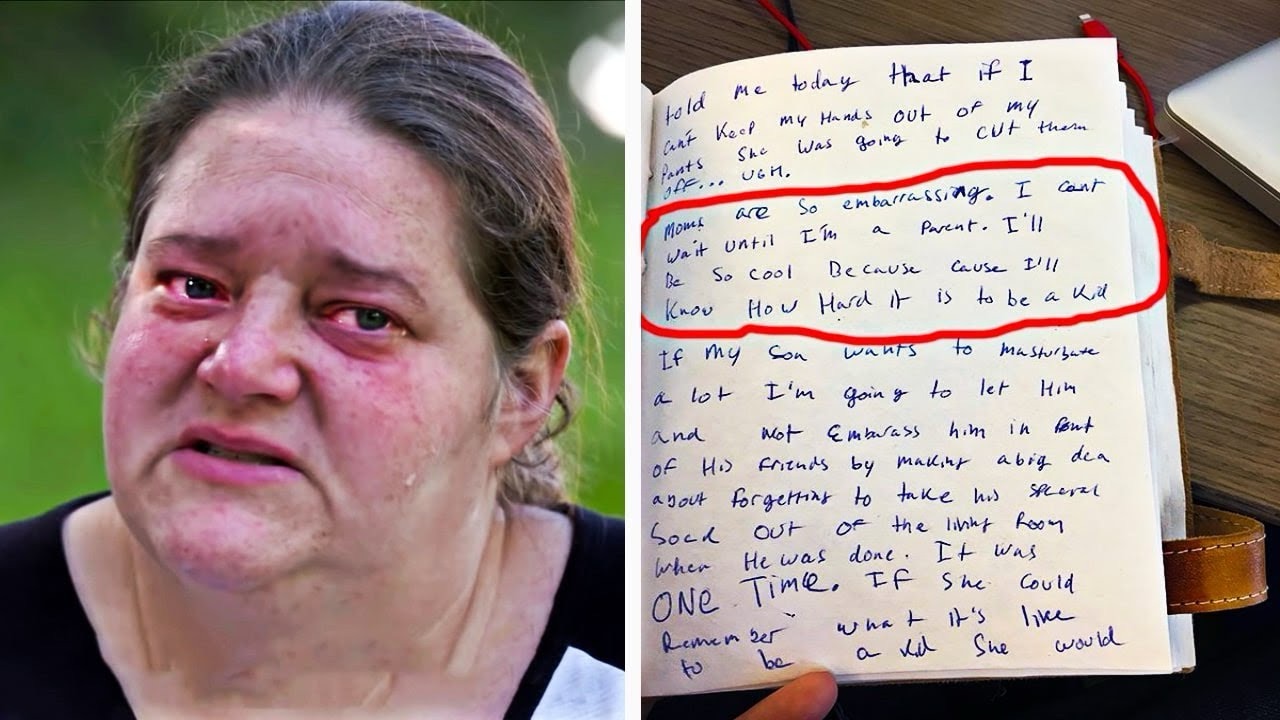 told me today that if I
can't Keep my Hands out of my
Pants she was going to cut them
off... UGH.
Moms are so embarrassing. I cant
wait until I'm a Parent. I'll
Be so cool Because cause I'll
Know How Hard it is to be a Kid
If my Son wants to masturbate
a lot I'm going to let Him
and not Embarass him in front
of His friends by making a big dea
about forgetting to take his special
Sock out of the living Room
when He was done. It was
ONE TIME. If she could
Remember what it's like
to be a kid she would